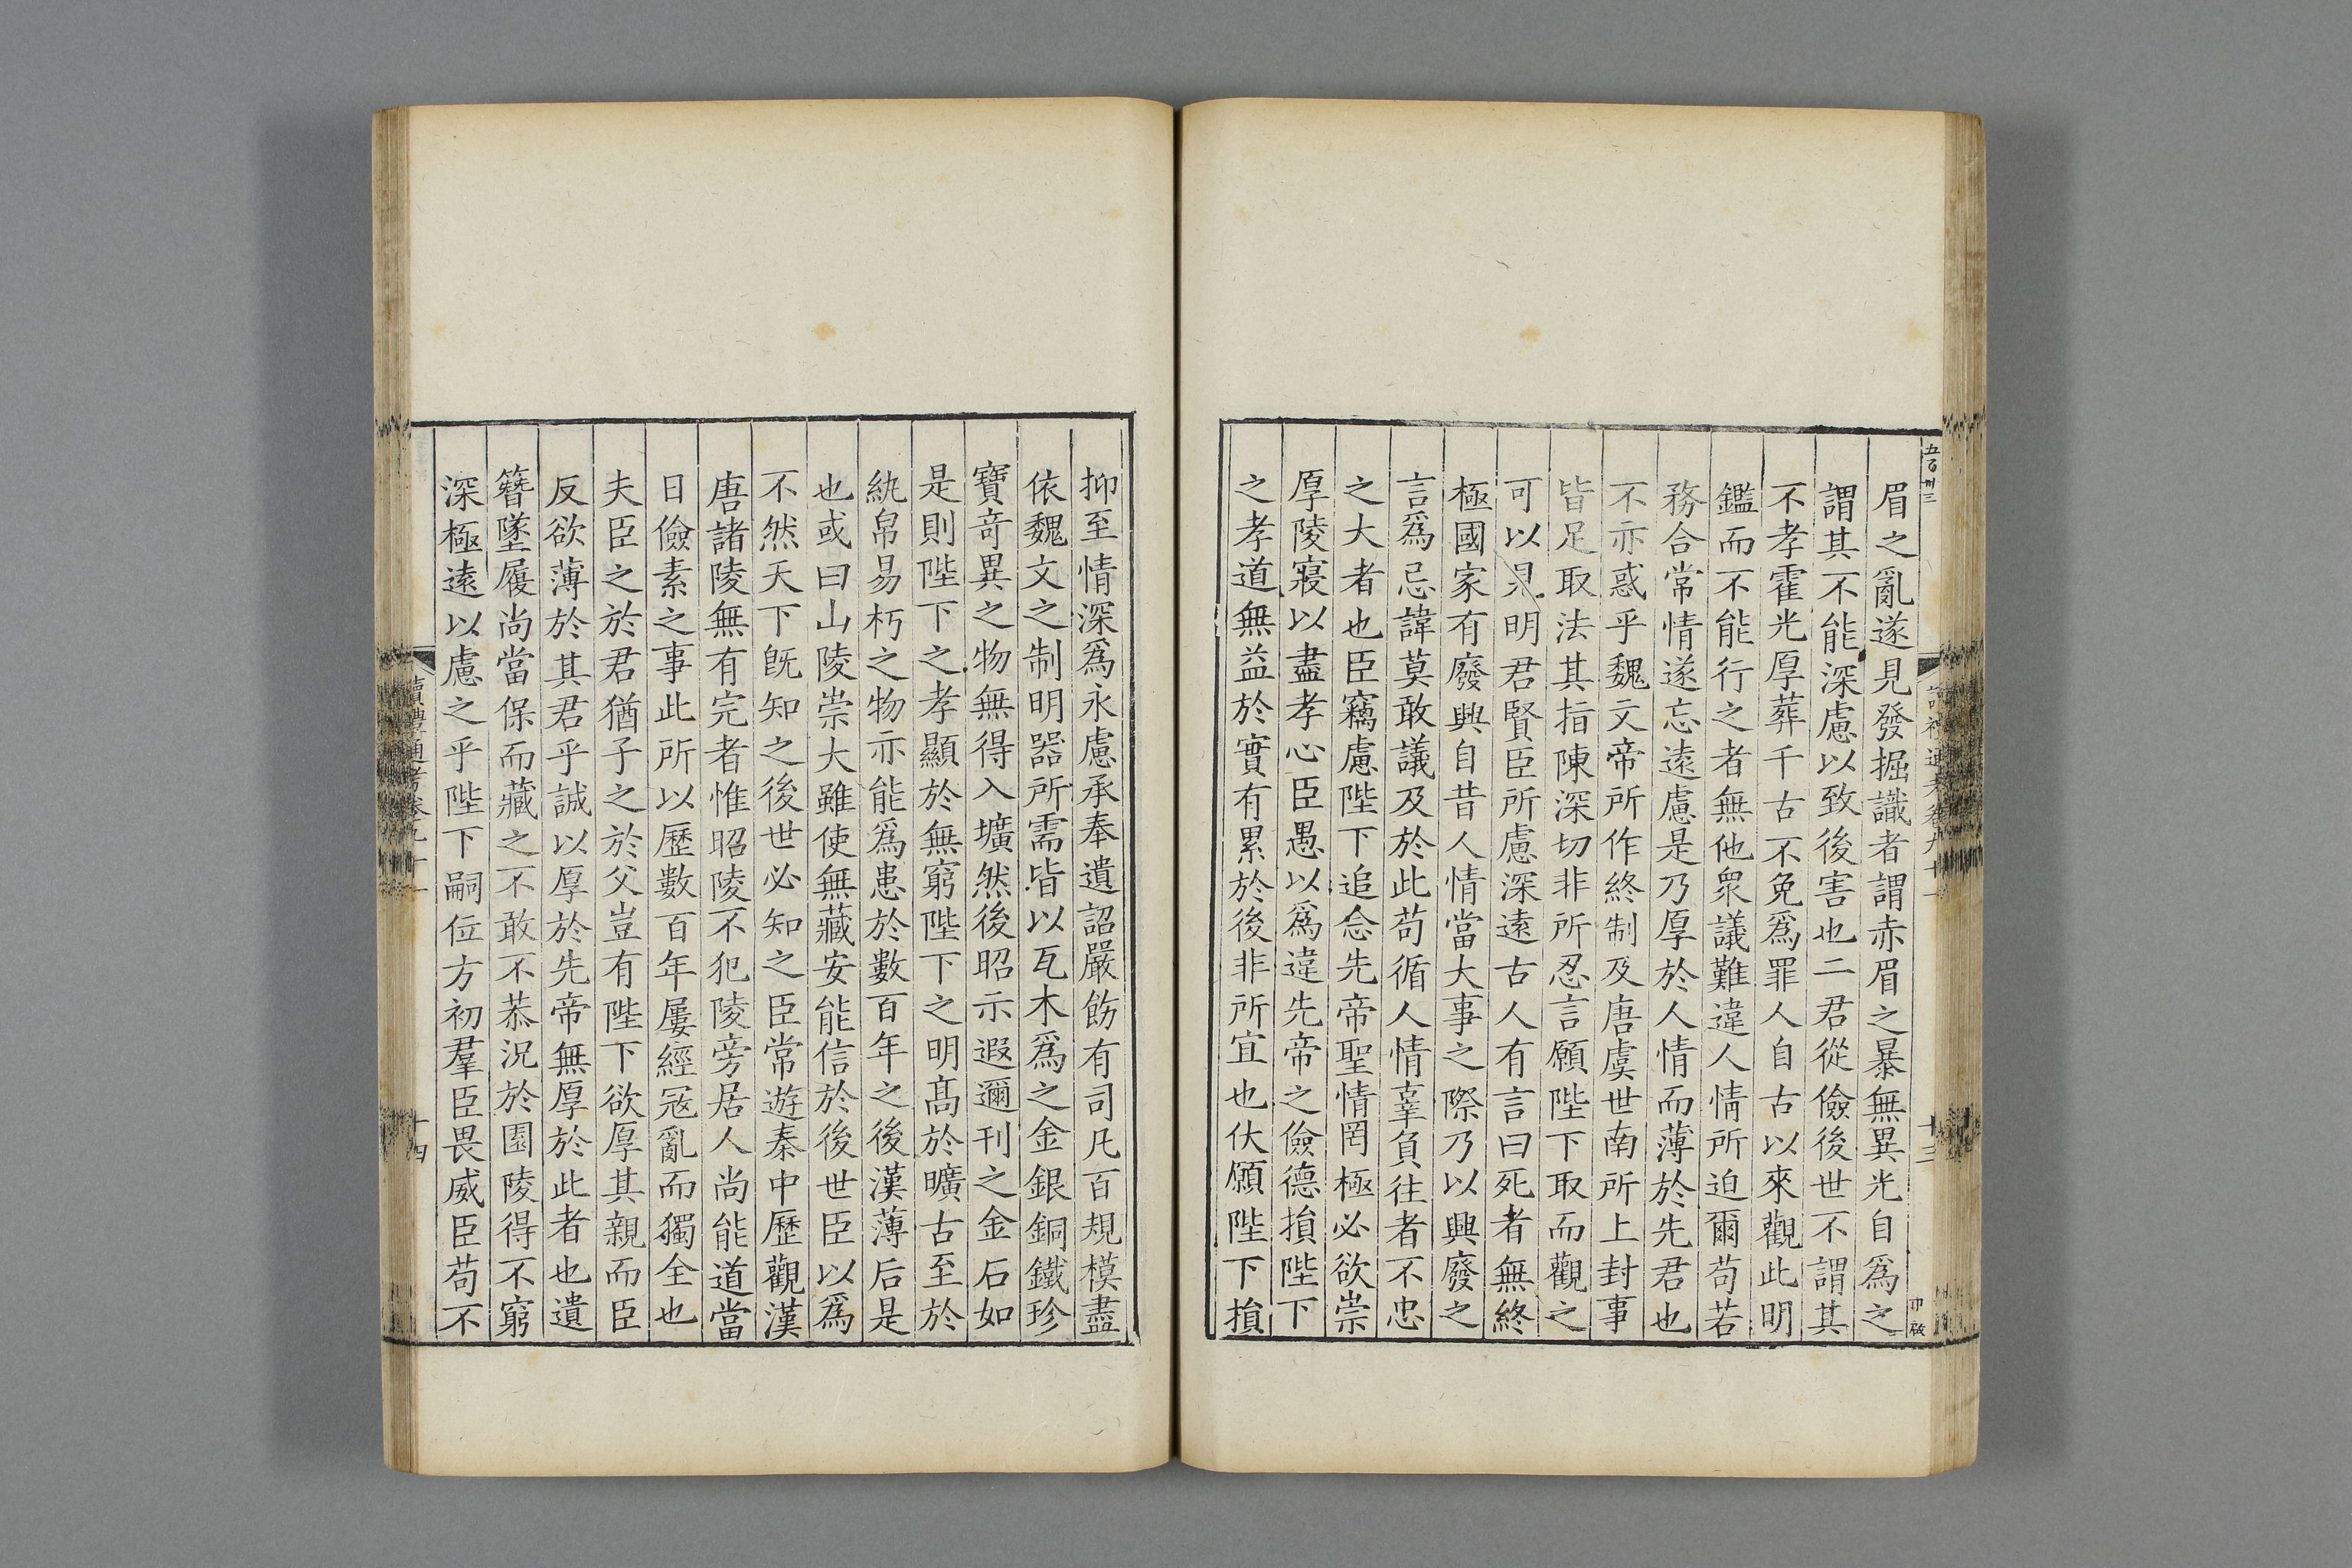 眉之亂遂見發掘識者謂赤眉之暴無異光自爲之
謂其不能深慮以致後害也二君從儉後世不謂其
不孝霍光厚葬千古不免爲罪人自古以來觀此明
鑑而不能行之者無他衆議難違人情所迫爾苟若
務合常情遂忘遠慮是乃厚於人情而薄於先君也
不亦惑乎魏文帝所作終制及唐虞世南所上封事
皆足取法其指陳深切非所忍言願陛下取而觀之
可以見明君賢臣所慮深遠古人有言曰死者無終
極國家有廢興自昔人情當大事之際乃以興廢之
言爲忌諱莫敢議及於此苟循人情辜負往者不忠
之大者也臣竊慮陛下追念先帝聖情罔極必欲崇
厚陵寢以盡孝心臣愚以爲違先帝之儉德損陛下
之孝道無益於實有累於後非所宜也伏願陛下損
抑至情深爲永慮承奉遺詔嚴飭有司凡百規模盡
依魏文之制明器所需皆以瓦木爲之金銀銅鐵珍
寶竒異之物無得入壙然後昭示遐邇刊之金石如
是則陛下之孝顯於無窮陛下之明髙於曠古至於
紈帛易朽之物亦能爲患於數百年之後漢薄后是
也或曰山陵崇大雖使無藏安能信於後世臣以爲
不然天下旣知之後世必知之臣常遊秦中歷觀漢
唐諸陵無有完者惟昭陵不犯陵旁居人尚能道當
日儉素之事此所以歷數百年屢經冦亂而獨全也
夫臣之於君猶子之於父豈有陛下欲厚其親而臣
反欲薄於其君乎誠以厚於先帝無厚於此者也遺
簪墜履尚當保而藏之不敢不恭況於園陵得不窮
深極遠以慮之乎陛下嗣位方初羣臣畏威臣苟不
讀禮通考卷九十一
十四